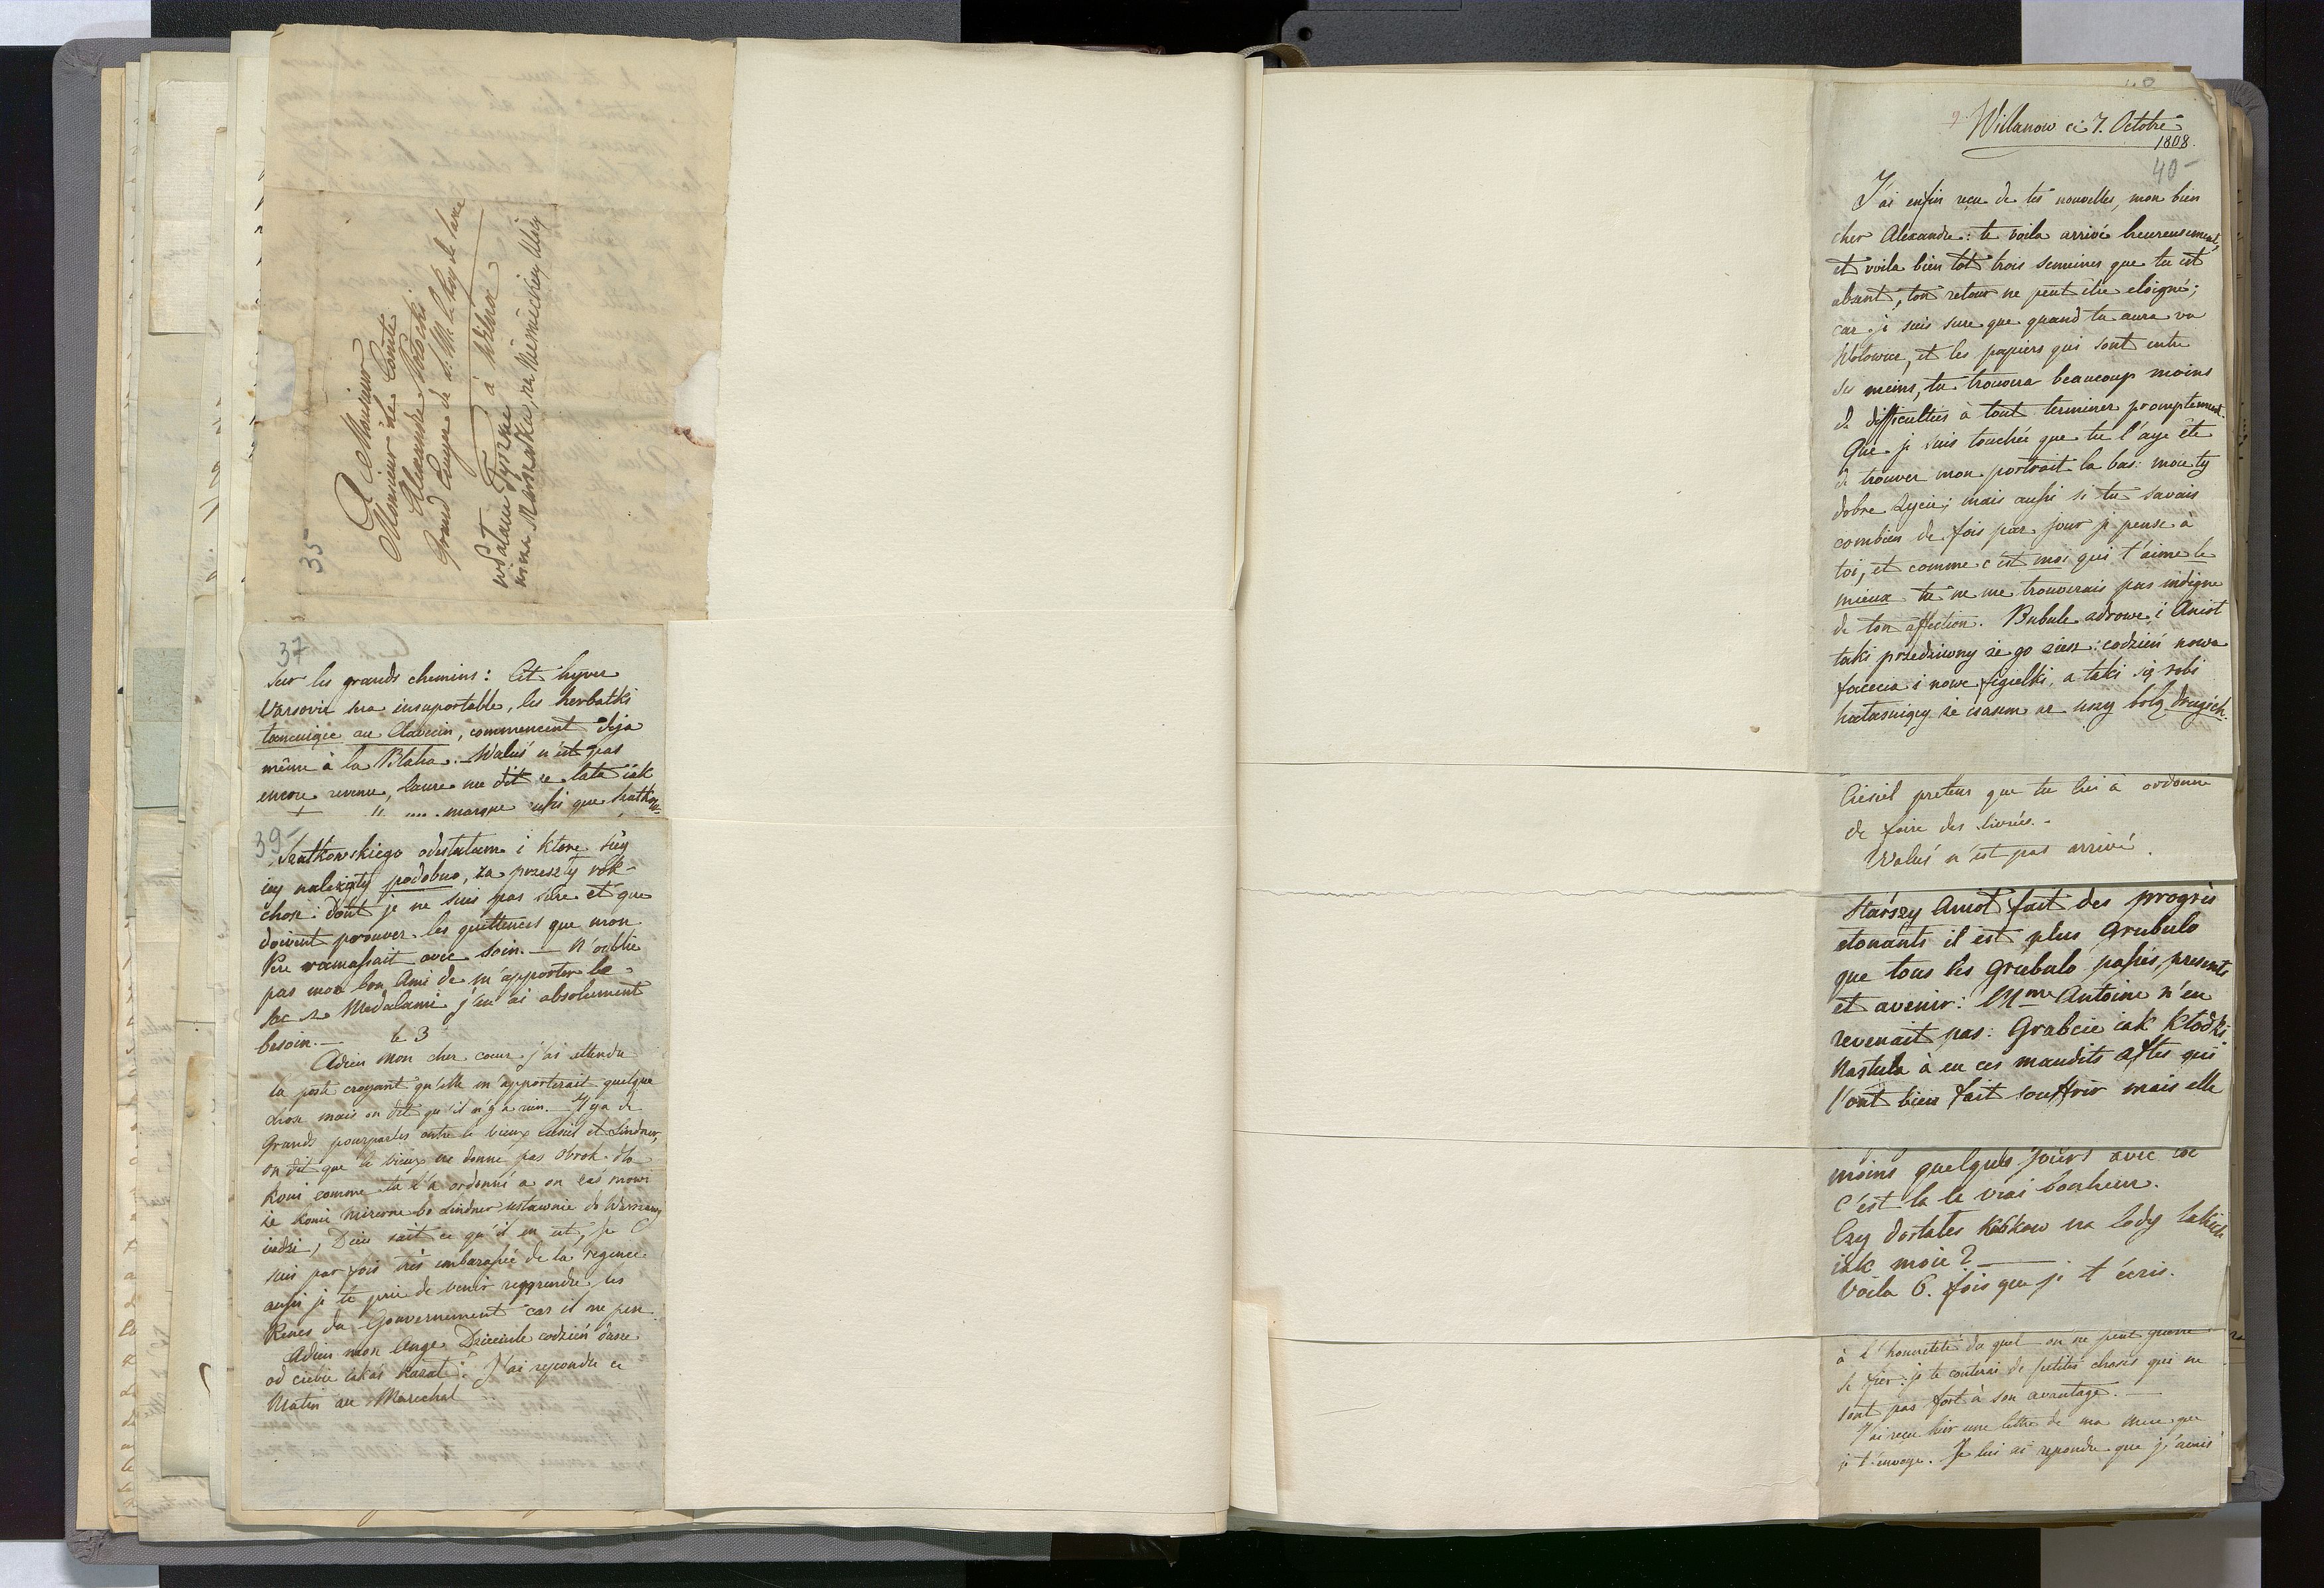 35
A Monsieur
Monsieur le Comte
Alexandre Potocki
Grand Ecuyer de S. M. le Roy de Saxe
à Wilna
w Pałacu Tyzne
na Niemieckiey Ulicy
37
Sur les grands chemins: Cet hyver
Varsovie sera insuportable, les herbatki
tancuięce au Clavecin, commencent deja
même à la Blaha. Waluś n'est pas
encore revenu, Laure me dit ze lata iak
marque aussi que Szatkow=
39
Szatkowskiego odestałam i ktore się
iey należą podobno, za przeszły rok -
chose dont je ne suis pas sûre et que
doivent prouver les quittences que mon
Pere ramassait avec soin. — N'oublie
pas mon bon Ami de m'apporter le
sac ze Medalami j'en ai absolument
besoin. — le 3
Adieu mon cher cœur j'ai attendu
la poste croyant qu'elle m'apporterait quelque
chose mais on dit qu'il n'y a rien. Il y a de
Grands pourparlés entre le vieux Ciesiel et Lindner,
on dit que le vieux ne donne pas obrok dla
koni comme tu l'a ordonné a on zaś mowi
że konie mizerne bo Lindner ustawnie do Warszawy
iezdzi, Dieu sait ce qu'il en est, je
suis par fois très embarassée de la regence
aussi je te prie de venir repprendre les
Renes du Gouvernement car il me pese
Adieu mon Ange Dziecięcie codzień
od ciebie iakaś kazał. J'ai repondu ce
Matin au Marechal
40
Willanow ce 7. Octobre
1808.
40
J'ai enfin reçu de tes nouvelles, mon bien
cher Alexandre: te voila arrivé heureusement,
et voila bien tôt trois semaines que tu est
absent, ton retour ne peut être eloigné;
car je suis sure que quand tu aura vu
Wołowicz, et les papiers qui sont entre
ses mains, tu trouvera beaucoup moins
de difficultés à tout terminer promptement.
Que je suis touchée que tu l'aye été
de trouver mon portrait la bas: moie ty
dobre życie; mais aussi si tu savais
combien de fois par jour je pense à
toi, et comme c'est moi qui t'aime le
mieux tu ne me trouverais pas indigne
de ton affection. Bubule zdrowe i Aniot
taki przedziwny że go ziesz: codzień nowa
facecia i nowe figielki, a taki się robi
hałasuiący że czasem ze uszy bolą drugich.
Ciesiel pretens que tu lui à ordonné
de faire des livrées. -
Waluś n'est pas arrivé.
Starszy Aniot fait des progrès
etonants il est plus Grubulo
que tous les Grubulo passés, presents
et avenir: Mme Antoine n'en
revenait pas: Grabcie iak Kłodki
Nastula à eu ces maudits aftes qui
l'ont bien fait souffrir mais elle
moins quelques jours avec toi
C'est la le vrai bonheur.
Czy dostałes kubkow na lody takich
iak moie? —
Voila 6. fois que je t'écris.
à l'honnêteté du quel on ne peut guerre
se fier: je te conterai de petites choses qui ne
sont pas fort à son avantage. —
J'ai reçu hier une lettre de ma mere que
je t'envoye. Je lui ai repondu que j'avais